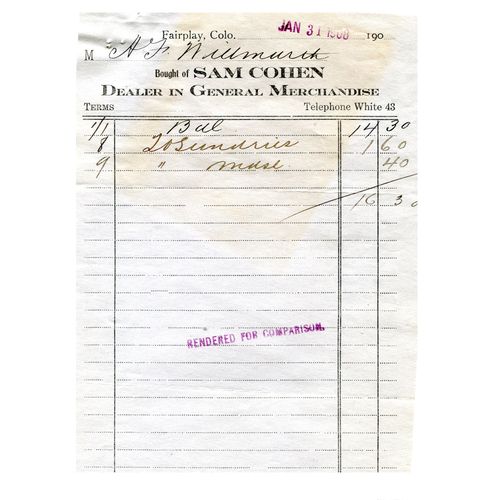 Fairplay, Colo. JAN 31 1908 190
M A F Willmarth
Bought of SAM COHEN
DEALER IN GENERAL MERCHANDISE
TERMS Telephone White 43
1/1 Bal 14 30
8 To Sundries 1 60
9 " mdse. 40
16 30
RENDERED FOR COMPARISON.